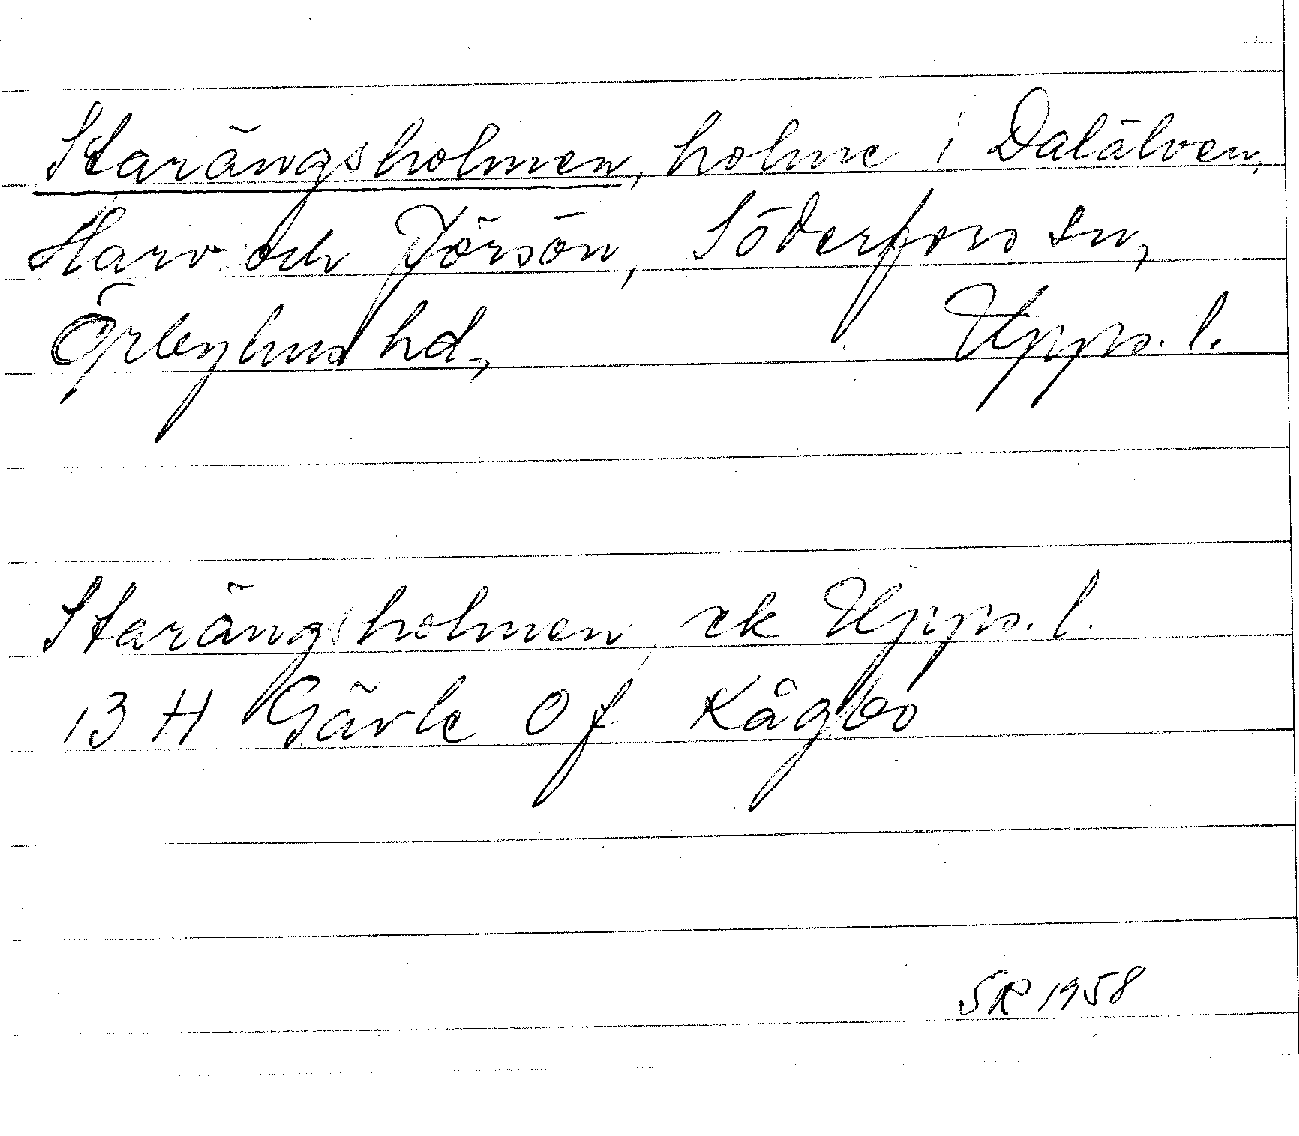 Starängsholmen, holme i Dalälven,
Harv och Jörsön, Söderfors sn,
Örbyhus hd, Upps. l.
Starängsholmen, ek Upps. l.
13 H Gävle 0 f Kågbo
SR 1958